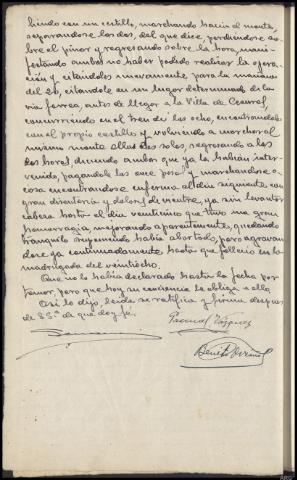 biendo con un cestillo, marchando hacia el monte,
separandose los dos, del que dice, perdiendose so-
bre el pinar y regresando sobre la hora, mani-
festando ambos no haber podido realizar la opera-
ción y citandoles nuevamente para la mañana
del 26, citandole en un lugar determinado de la
via ferrea, antes de llegar a la Villa de
concurriendo en el tren de las ocho, encontrandole
con el propio cestillo y volviendo a marchar al
mismo monte ellas dos solas, regresando a las
dos horas, diciendo ambas que ya la habian inter-
venido, pagandole las once pesetas y marchandose a
casa encontrandose enferma al dia siguiente con
gran disenteria y dolores de vientre, ya sin levantar
cabeza hasta el dia veintisiete que tuvo una gran
hemorragia, mejorando aparentemente, quedando
tranquila suponiendo habia abortado, pero agravan-
dose ya continuadamente, hasta que fallecio en la
madrugada del veintiocho.
Que no lo habia declarado hasta la fecha por
temor, pero que hoy su conciencia le obliga a ello.
Asi lo dijo, leida se ratifica y firma despues
de SSª de que doy fe.
Pascual Vazquez
Benito